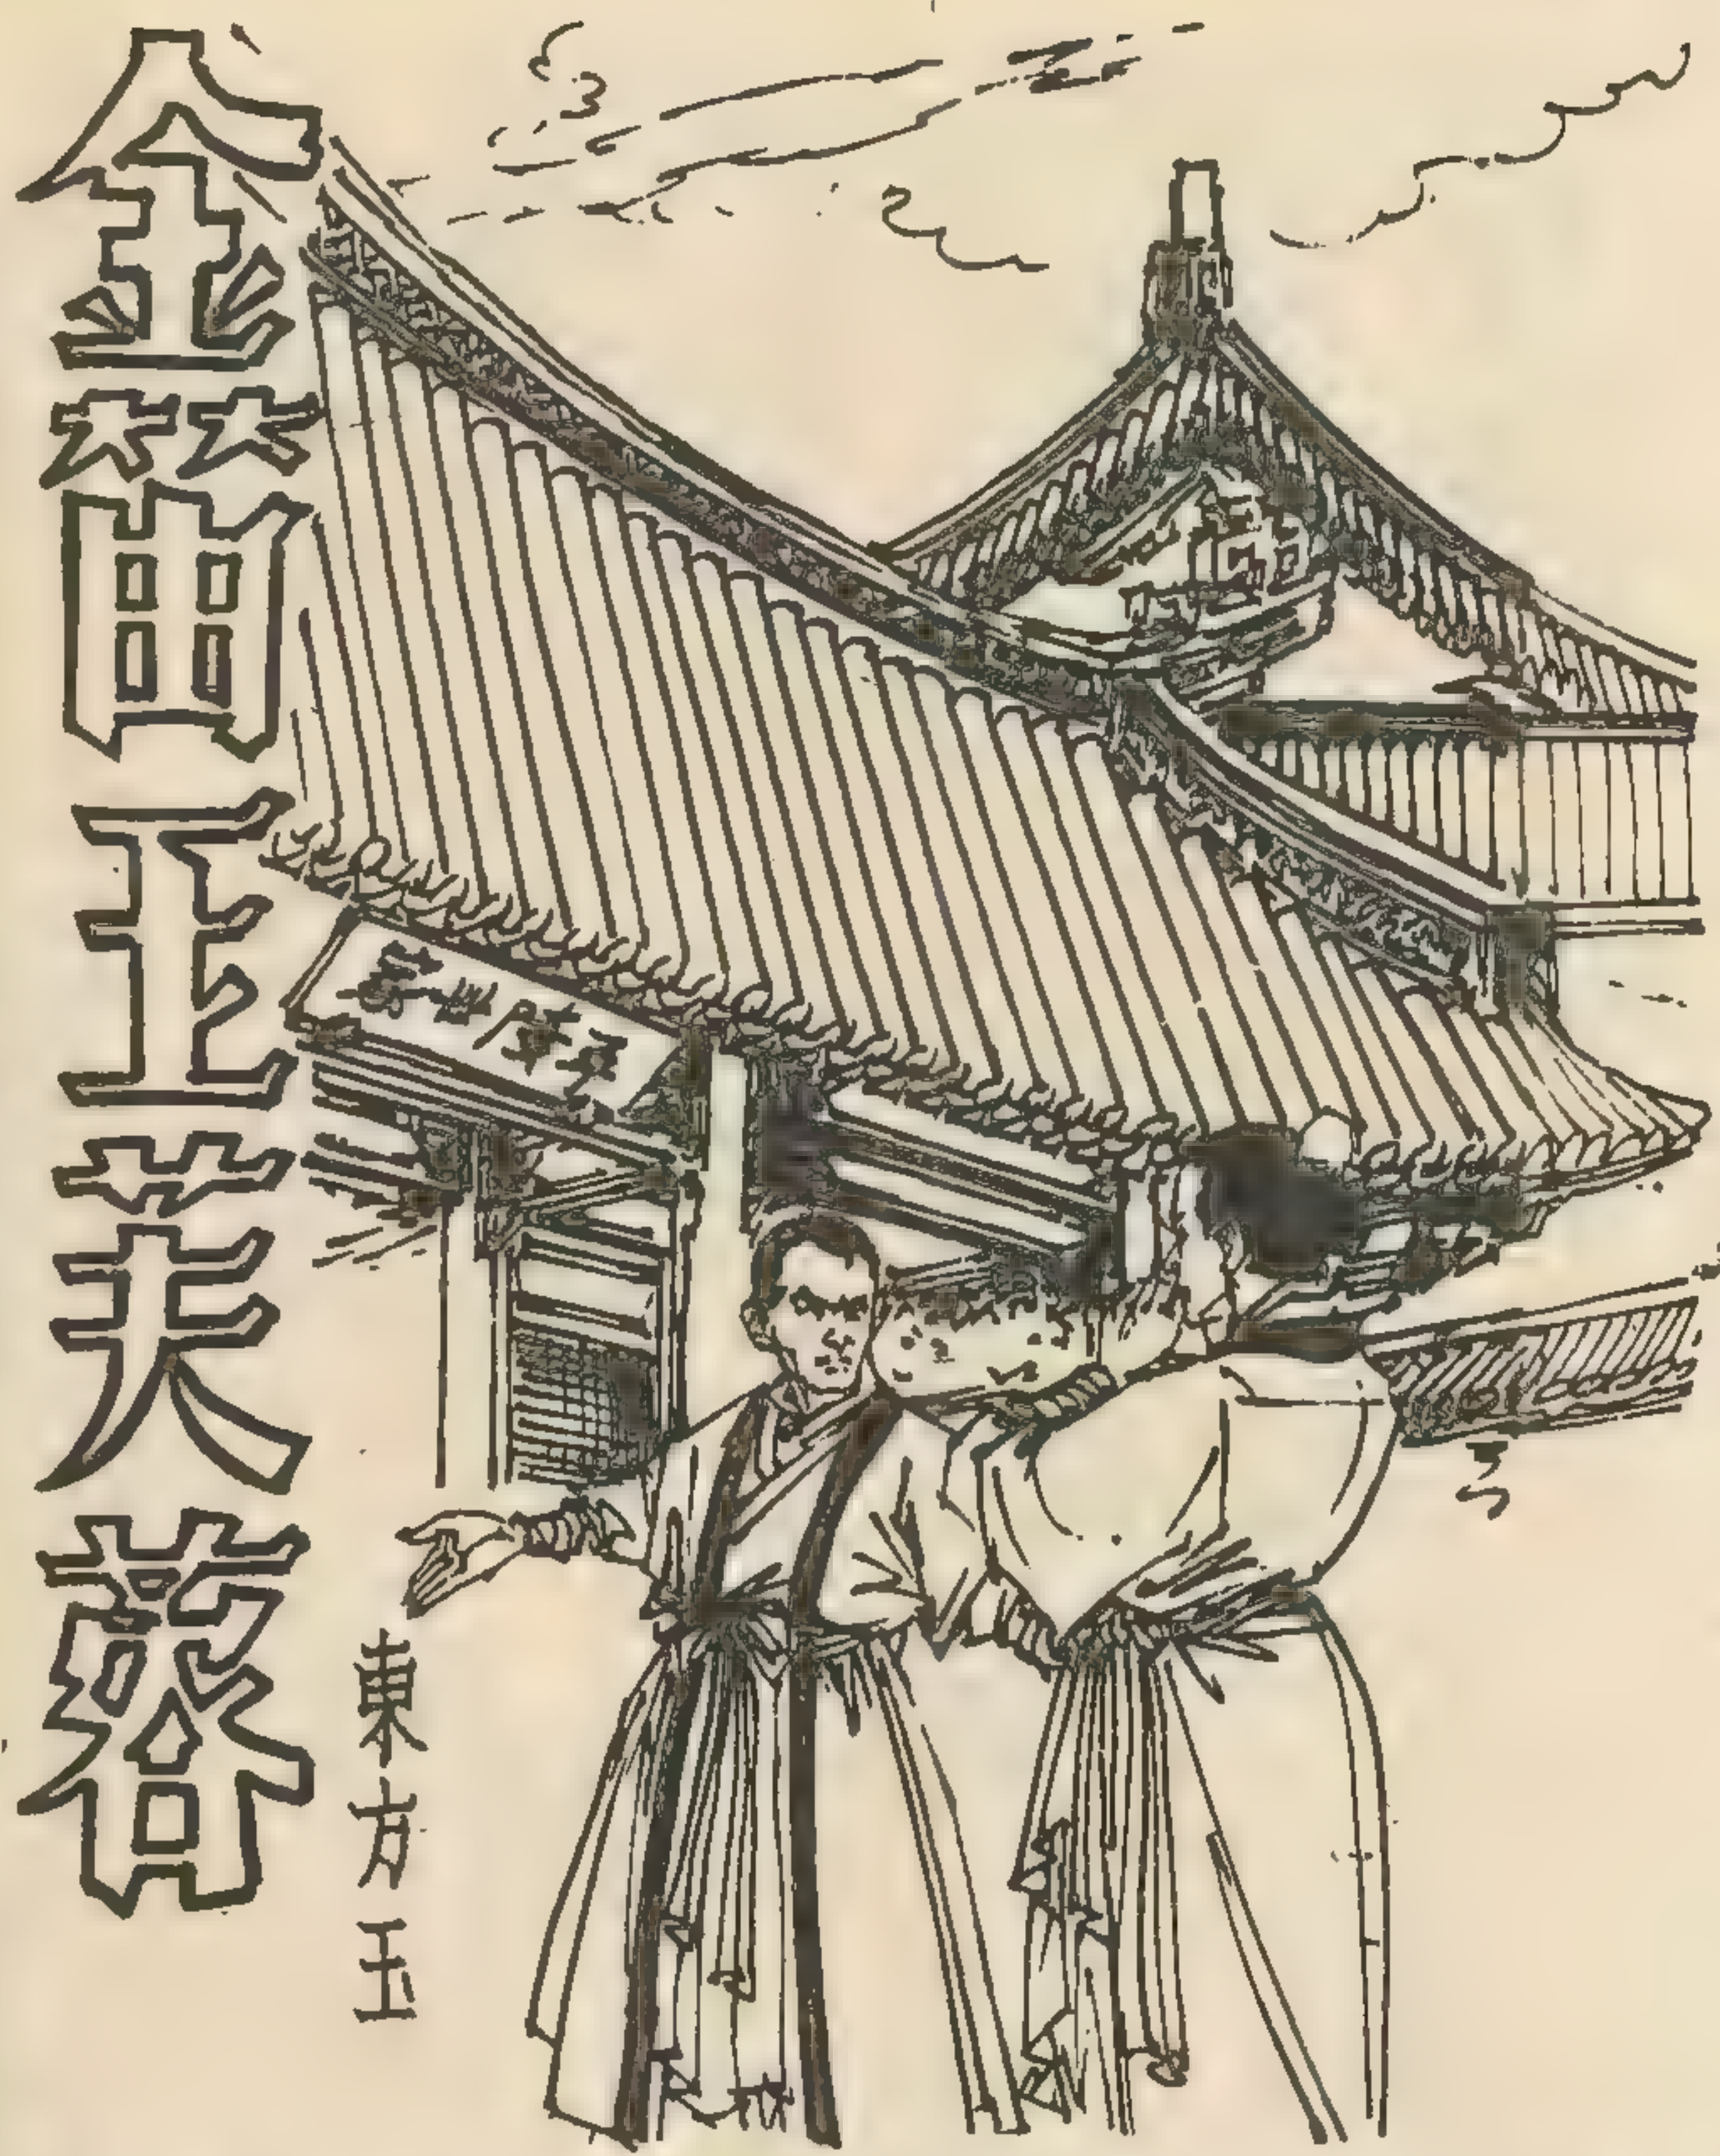 金笛玉芙蓉
東方玉